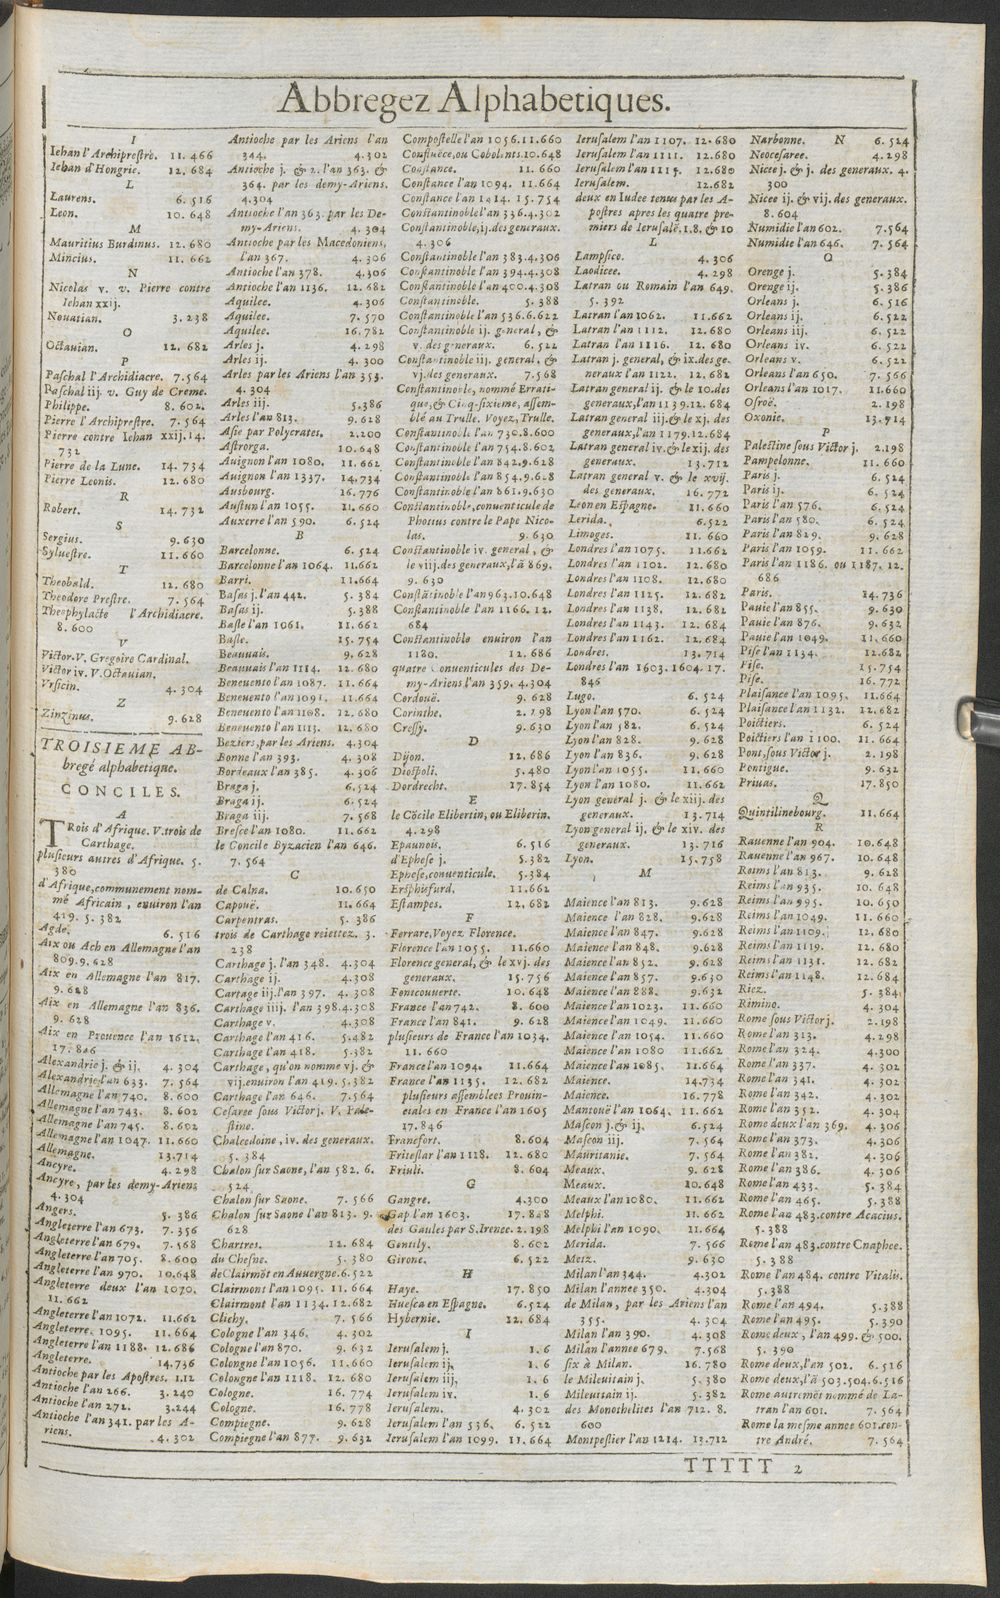 Abbregez Alphabetiques.
I
Iehan l'Archiprestre. 11.466
Iehan d'Hongrie. 12.684
L
Laurens. 6.516
Leon. 10.648
M
Mauritius Burdinus. 12.680
Mincius. 11.662
N
Nicolas v. v. Pierre contre
Iehan xxij.
Nouatian. 3.238
O
Octauian. 12.682
P
Paschal l'Archidiacre. 7.564
Paschal iij. v. Guy de Creme.
Philippe. 8.602.
Pierre l'Archiprestre. 7.564
Pierre contre Iehan xxij.14.
732
Pierre de la Lune. 14.734
Pierre Leonis. 12.680
R
Robert. 14.732
S
Sergius. 9.630
Syluestre. 11.660
T
Theobald. 12.680
Theodore Prestre. 7.564
Theophylacte l'Archidiacre.
8.600
V
Victor.V. Gregoire Cardinal.
Victor iv. V.Octauian.
Vrsicin. 4.304
Z
Zinzinus. 9.628
TROISIEME AB-
bregé alphabetique.
CONCILES.
A
TRois d'Afrique. V.trois de
Carthage.
plusieurs autres d'Afrique. 5.
380
d'Afrique,communement nom-
mé Africain, enuiron l'an
419. 5.382
Agde. 6.516
Aix ou Ach en Allemagne l'an
809.9.628
Aix en Allemagne l'an 817.
9.628
Aix en Allemagne l'an 836.
9.628
Aix en Prouence l'an 1612.
17.846
Alexandrie j. & ij. 4.304
Alexandrie l'an 633. 7.564
Allemagne l'an 740. 8.600
Allemagne l'an 743. 8.602
Allemagne l'an 745. 8.602
Allemagne l'an 1047. 11.660
Allemagne. 13.714
Ancyre. 4.298
Ancyre, par les demy-Ariens
4.304
Angers. 5.386
Angleterre l'an 673. 7.356
Angleterre l'an 679. 7.568
Angleterre l'an 705. 8.600
Angleterre l'an 970. 10.648
Angleterre deux l'an 1070.
11.662
Angleterre l'an 1072. 11.662
Angleterre. 1095. 11.664
Angleterre l'an 1188. 12.686
Angleterre. 14.736
Antioche par les Apostres. 1.12
Antioche l'an 266. 3.240
Antioche l'an 272. 3.244
Antioche l'an 341. par les A-
riens. 4.302
Antioche par les Ariens l'an
344. 4.302
Antioche j. & 2. l'an 363. &
364. par les demy-Ariens.
4.304
Antioche l'an 363. par les De-
my-Ariens. 4.304
Antioche par les Macedoniens,
l'an 367. 4.306
Antioche l'an 378. 4.306
Antioche l'an 1136. 12.682
Aquilee. 4.306
Aquilee. 7.570
Aquilee. 16.782
Arles j. 4.298
Arles ij. 4.300
Arles par les Ariens l'an 353.
4.304
Arles iij. 5.386
Arles l'an 813. 9.628
Asie par Polycrates. 2.200
Astrorga. 10.648
Auignon l'an 1080. 11.662
Auignon l'an 1337. 14.734
Ausbourg. 16.776
Austun l'an 1055. 11.660
Auxerre l'an 590. 6.524
B
Barcelonne. 6.524
Barcelonne l'an 1064. 11.662
Barri. 11.664
Basas j. l'an 442. 5.384
Basas ij. 5.388
Basle l'an 1061. 11.662
Basle. 15.754
Beauuais. 9.628
Beauuais l'an 1114. 12.680
Beneuento l'an 1087. 11.664
Beneuento l'an 1091. 11.664
Beneuento l'an 1108. 12.680
Beneuento l'an 1113. 12.680
Beziers,par les Ariens. 4.304
Bonne l'an 393. 4.308
Bordeaux l'an 385. 4.306
Braga j. 6.524
Braga ij. 6.524
Braga iij. 7.568
Bresce l'an 1080. 11.662
le Concile Byzacien l'an 646.
7.564
C
de Calna. 10.650
Capouë. 11.664
Carpentras. 5.386
trois de Carthage reiettez. 3.
238
Carthage j. l'an 348. 4.304
Carthage ij. 4.308
Cartage iij.l'an 397. 4.308
Carthage iiij. l'an 398.4.308
Carthage v. 4.308
Carthage l'an 416. 5.482
Carthage l'an 418. 5.382
Carthage, qu'on nomme vj. &
vij.enuiron l'an 419.5.382
Carthage l'an 646. 7.564
Cesaree sous Victor j. V. Pale-
stine.
Chalcedoine, iv. des generaux.
5.384
Chalon sur Saone, l'an 582. 6.
524
Chalon sur Saone. 7.566
Chalon sur Saone l'an 813. 9.
628
Chartres. 12.684
du Chesne. 5.380
de Clairmõt en Auuergne.6.522
Clairmont l'an 1095. 11.664
Clairmont l'an 1134.12.682
Clichy. 7.566
Cologne l'an 346. 4.302
Cologne l'an 870. 9.632
Colongne l'an 1056. 11.660
Colongne l'an 1118. 12.680
Cologne. 16.774
Cologne. 16.778
Compiegne. 9.628
Compiegne l'an 877. 9.632
Compostelle l'an 1056.11.660
Confluéce,ou Cobolents.10.648
Constance. 11.660
Constance l'an 1094. 11.664
Constance l'an 1414. 15.754
Constantinoble l'an 336.4.302
Constantinoble,ij.des generaux.
4.306
Constantinoble l'an 383.4.306
Constantinoble l'an 394.4.308
Constantinoble l'an 400.4.308
Constantinoble. 5.388
Constantinoble l'an 536.6.622
Constantinoble ij. general, &
v. des generaux. 6.522
Constantinoble iij. general, &
vj.des generaux. 7.568
Constantinoble, nommé Errati-
que,& Cinq-sixieme, assem-
blé au Trulle. Voyez, Trulle.
Constantinoble l'an 730.8.600
Constantinoble l'an 754.8.602
Constantinoble l'an 842.9.628
Constantinoble l'an 854.9.628
Constantinoble l'an 861.9.630
Constantinoble,conuenticule de
Photius contre le Pape Nico-
las. 9.630
Constantinoble iv. general, &
le viij.des generaux,l'ã 869.
9.630
Constãtinoble l'an 963.10.648
Constantinoble l'an 1166. 12.
684
Constantinoble enuiron l'an
1180. 12.686
quatre Conuenticules des De-
my-Ariens l'an 359. 4.304
Cordouë. 9.628
Corinthe. 2.198
Cressy. 9.630
D
Dijon. 12.686
Diospoli. 5.480
Dordrecht. 17.854
E
le Cõcile Elibertin, ou Eliberin.
4.298
Epaunois. 6.516
d'Ephese j. 5.382
Ephese,conuenticule. 5.384
Ersphisfurd. 11.662
Estampes. 12.682
F
Ferrare,Voyez Florence.
Florence l'an 1055. 11.660
Florence general, & le xvj. des
generaux. 15.756
Fontcouuerte. 10.648
France l'an 742. 8.600
France l'an 841. 9.628
plusieurs de France l'an 1034.
11.660
France l'an 1094. 11.664
France l'an 1135. 12.682
plusieurs assemblees Prouin-
ciales en France l'an 1605
17.846
Francfort. 8.604
Friteslar l'an 1118. 12.680
Friuli. 8.604
G
Gangre. 4.300
Gap l'an 1603. 17.848
des Gaules par S.Irenee. 2.198
Gentily. 8.602
Girone. 6.522
H
Haye. 17.850
Huesca en Espagne. 6.524
Hybernie. 12.684
I
Ierusalem j. 1.6
Ierusalem ij. 1.6
Ierusalem iij. 1.6
Ierusalem iv. 1.6
Ierusalem. 4.302
Ierusalem l'an 536. 6.522
Ierusalem l'an 1099. 11.664
Ierusalem l'an 1107. 12.680
Ierusalem l'an 1111. 12.680
Ierusalem l'an 1115. 12.680
Ierusalem. 12.682
deux en Iudee tenus par les A-
postres apres les quatre pre-
miers de Ierusalẽ.1.8. & 10
L
Lampsico. 4.306
Laodicee. 4.298
Latran ou Romain l'an 649.
5.392
Latran l'an 1062. 11.662
Latran l'an 1112. 12.680
Latran l'an 1116. 12.680
Latran j. general, & ix.des ge-
neraux l'an 1122. 12.682
Latran general ij. & le 10.des
generaux,l'an 1139.12.684
Latran general iij.& le xj. des
generaux,l'an 1179.12.684
Latran general iv.& le xij. des
generaux. 13.712
Latran general v. & le xvij.
des generaux. 16.772
Leon en Espagne. 11.660
Lerida. 6.522
Limoges. 11.660
Londres l'an 1075. 11.662
Londres l'an 1102. 12.680
Londres l'an 1108. 12.680
Londres l'an 1125. 12.682
Londres l'an 1138. 12.682
Londres l'an 1143. 12.684
Londres l'an 1162. 12.684
Londres. 13.714
Londres l'an 1603.1604.17.
846
Lugo. 6.524
Lyon l'an 570. 6.524
Lyon l'an 582. 6.524
Lyon l'an 828. 9.628
Lyon l'an 836. 9.628
Lyon l'an 1055. 11.660
Lyon l'an 1080. 11.662
Lyon general j. & le xiij. des
generaux. 13.714
Lyon general ij. & le xiv. des
generaux. 13.716
Lyon. 15.758
M
Maience l'an 813. 9.628
Maience l'an 828. 9.628
Maience l'an 847. 9.628
Maience l'an 848. 9.628
Maience l'an 852. 9.628
Maience l'an 857. 9.630
Maience l'an 888. 9.632
Maience l'an 1023. 11.660
Maience l'an 1049. 11.660
Maience l'an 1054. 11.660
Maience l'an 1080 11.662
Maience l'an 1085. 11.664
Maience. 14.734
Maience. 16.778
Mantouë l'an 1064. 11.662
Mascon j.& ij. 6.524
Mascon iij. 7.564
Mauritanie. 7.564
Meaux. 9.628
Meaux. 10.648
Meaux l'an 1080. 11.662
Melphi. 11.662
Melphi l'an 1090. 11.664
Merida. 7.566
Metz. 9.630
Milan l'an 344. 4.302
Milan l'annee 350. 4.304
de Milan, par les Ariens l'an
355. 4.304
Milan l'an 390. 4.308
Milan l'annee 679. 7.568
six à Milan. 16.780
le Mileuitain j. 5.380
Mileuitain ij. 5.382
des Monothelites l'an 712. 8.
600
Montpestier l'an 1214. 13.712
N
Narbonne. 6.524
Neocesaree. 4.298
Nicee j. & j. des generaux. 4.
300
Nicee ij. & vij. des generaux.
8.604
Numidie l'an 602. 7.564
Numidie l'an 646. 7.564
O
Orenge j. 5.384
Orenge ij. 5.386
Orleans j. 6.516
Orleans ij. 6.522
Orleans iij. 6.522
Orleans iv. 6.522
Orleans v. 6.522
Orleans l'an 650. 7.566
Orleans l'an 1017. 11.660
Osroë. 2.198
Oxonie. 13.714
P
Palestine sous Victor j. 2.198
Pampelonne. 11.660
Paris j. 6.524
Paris ij. 6.524
Paris l'an 576. 6.524
Paris l'an 580. 6.524
Paris l'an 829. 9.628
Paris l'an 1059. 11.662
Paris l'an 1186. ou 1187. 12.
686
Paris. 14.736
Pauie l'an 855. 9.630
Pauie l'an 876. 9.632
Pauie l'an 1049. 11.660
Pise l'an 1134. 12.682
Pise. 15.754
Pise. 16.772
Plaisance l'an 1095. 11.664
Plaisance l'an 1132. 12.682
Poictiers. 6.524
Poictiers l'an 1100. 11.664
Pont,sous Victor j. 2.198
Pontigue. 9.632
Priuas. 17.850
Q
Quintilinebourg. 11.664
R
Rauenne l'an 904. 10.648
Rauenne l'an 967. 10.648
Reims l'an 813. 9.628
Reims l'an 935. 10.648
Reims l'an 995. 10.650
Reims l'an 1049. 11.660
Reims l'an 1109. 12.680
Reims l'an 1119. 12.680
Reims l'an 1131. 12.682
Reims l'an 1148. 12.684
Riez. 5.384
Rimino. 4.304
Rome sous Victor j. 2.198
Rome l'an 313. 4.298
Rome l'an 324. 4.300
Rome l'an 337. 4.302
Rome l'an 341. 4.302
Rome l'an 342. 4.302
Rome l'an 352. 4.304
Rome deux l'an 369. 4.306
Rome l'an 373. 4.306
Rome l'an 382. 4.306
Rome l'an 386. 4.306
Rome l'an 433. 5.384
Rome l'an 465. 5.388
Rome l'an 483.contre Acacius.
5.388
Rome l'an 483.contre Cnaphee.
5.388
Rome l'an 484. contre Vitalis.
5.388
Rome l'an 494. 5.388
Rome l'an 495. 5.390
Rome deux, l'an 499. & 500.
5.390
Rome deux,l'an 502. 6.516
Rome deux,l'ã 503.504.6.516
Rome autremẽt nommé de La-
tran l'an 601. 7.564
Rome la mesme annee 601.con-
tre André. 7.564
TTTTT 2